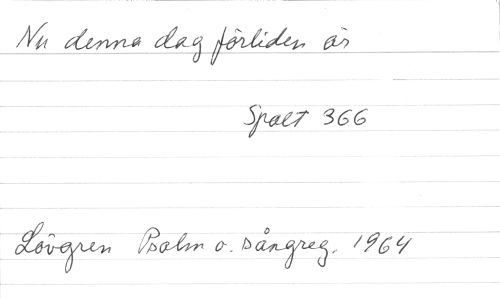 Nu denna dag förliden är
Spalt 366
Lövgren Psalm o. sångreg. 1964